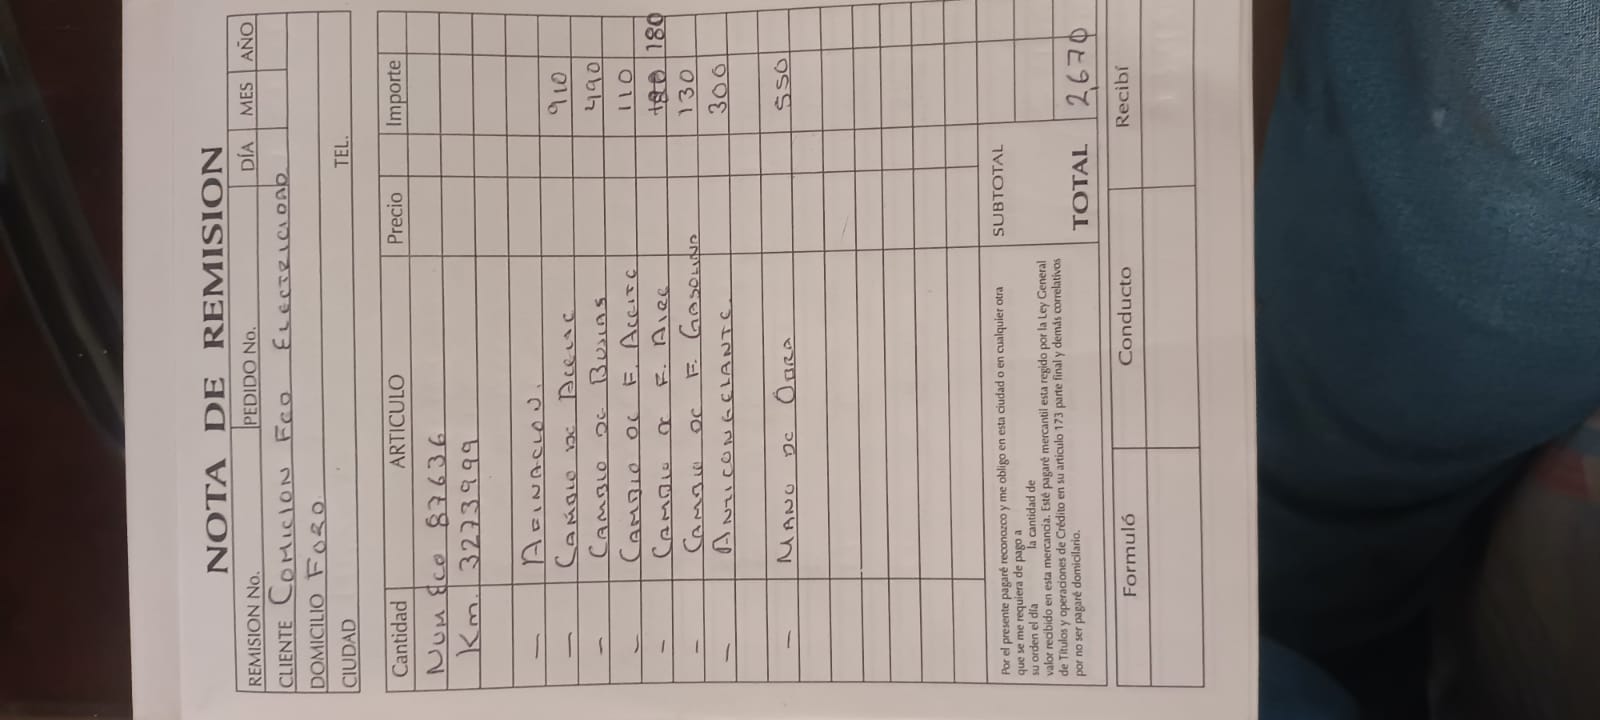 NOTA DE REMISION
REMISION No. PEDIDO No. DÍA MES AÑO
CLIENTE COMICION FCO ELECTRICIDAD
DOMICILIO FORO
CIUDAD TEL.
Cantidad ARTICULO Precio Importe
NUM Eco 87636
Km. 3273999
— AFINACION.
— CAMBIO DE ACEITE 910
- CAMBIO DE BUJIAS 490
- CAMBIO DE F. ACEITE 110
- CAMBIO DE F. AIRE 180 180
- CAMBIO DE F. GASOLINA 130
— ANTICONGELANTE. 300
— MANO DE OBRA 550
Por el presente pagaré reconozco y me obligo en esta ciudad o en cualquier otra
que se me requiera de pago a
su orden el día la cantidad de
valor recibido en esta mercancia. Esté pagaré mercantil esta regido por la Ley General
de Títulos y operaciones de Crédito en su articulo 173 parte final y demás correlativos
por no ser pagaré domicilario.
SUBTOTAL
TOTAL 2,670
Formuló Conducto Recibí